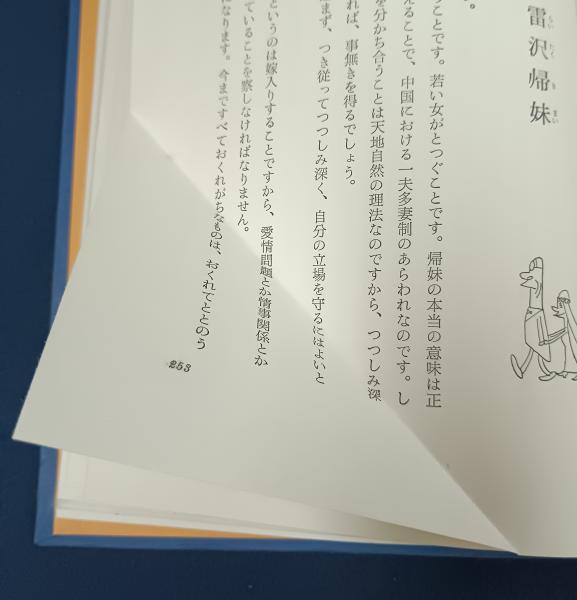 雷沢帰妹
らいたくきまい
。
うことです。若い女がとつぐことです。帰妹の本当の意味は正
えることで、中国における一夫多妻制のあらわれなのです。し
を分かち合うことは天地自然の理法なのですから、つつしみ深
れば、事無きを得るでしょう。
まず、つき従ってつつしみ深く、自分の立場を守るにはよいと
というのは嫁入りすることですから、愛情問題とか情事関係とか
ていることを察しなければなりません。
になります。今まですべておくれがちなものは、おくれてととのう
253